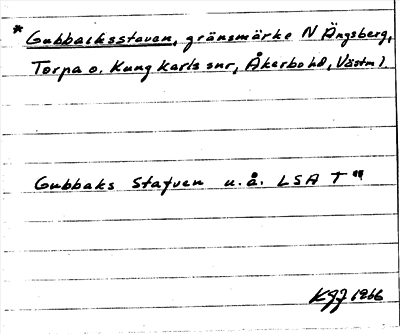 * Gubbacksstaven, gränsmärke N Ängsberg,
Torpa o. Kung Karls snr, Åkerbo hd, Västm l
Gubbaks Stafven u.å. LSA T"
KGJ 1966